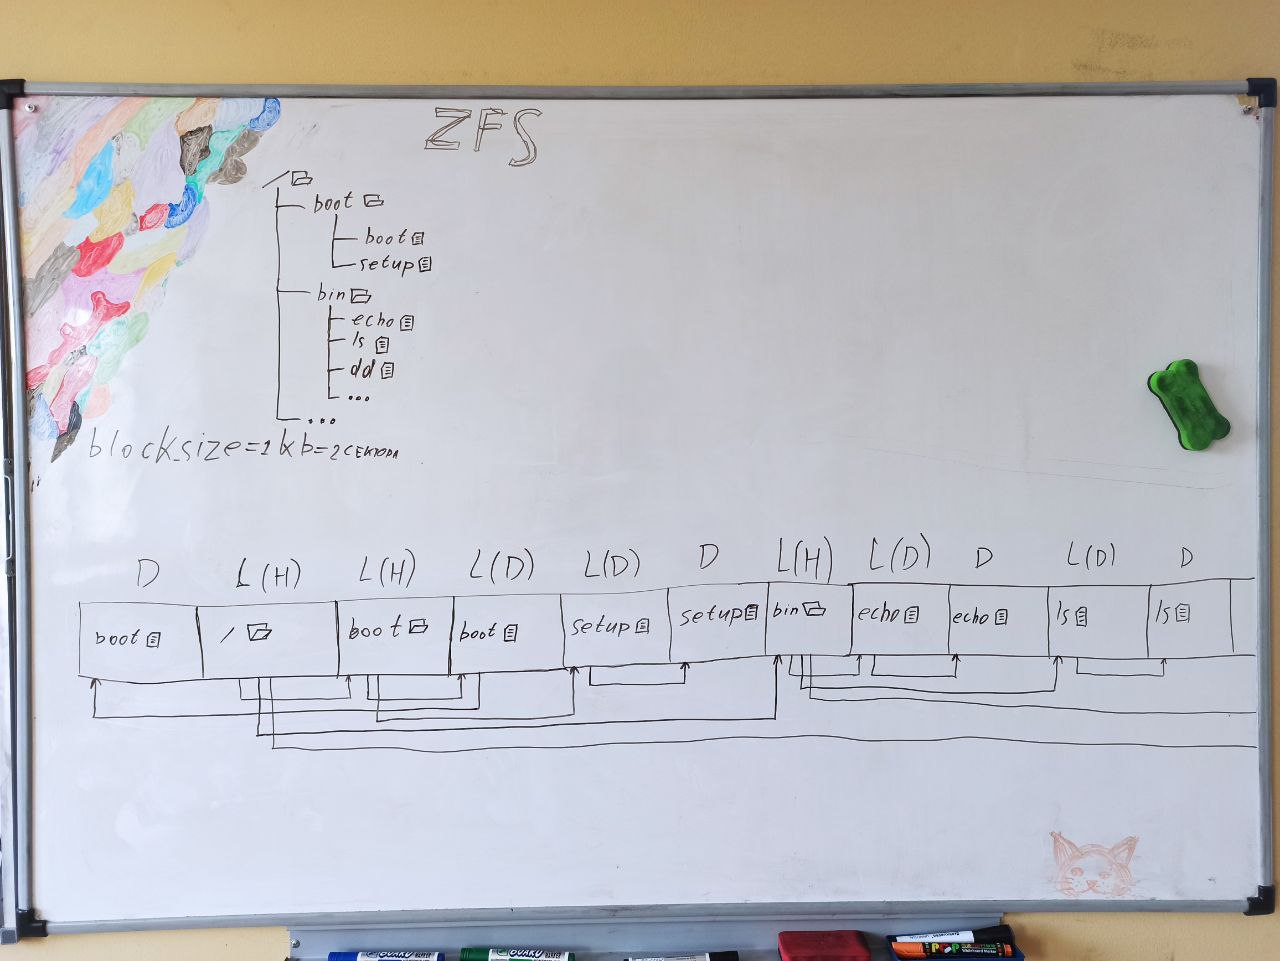 ZFS
/
boot
boot
setup
bin
echo
ls
dd
...
...
block_size=1kb=2сектора
D L(H) L(H) L(D) L(D) D L(H) L(D) D L(D) D
boot / boot boot setup setup bin echo echo ls ls